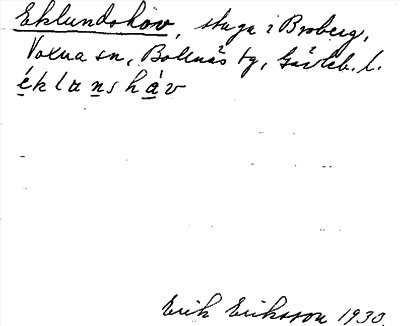 Eklundshov, stuga i Broberg,
Voxna sn, Bollnäs tg, Gävleb. l.
éklanshåv
Erik Eriksson 1930.